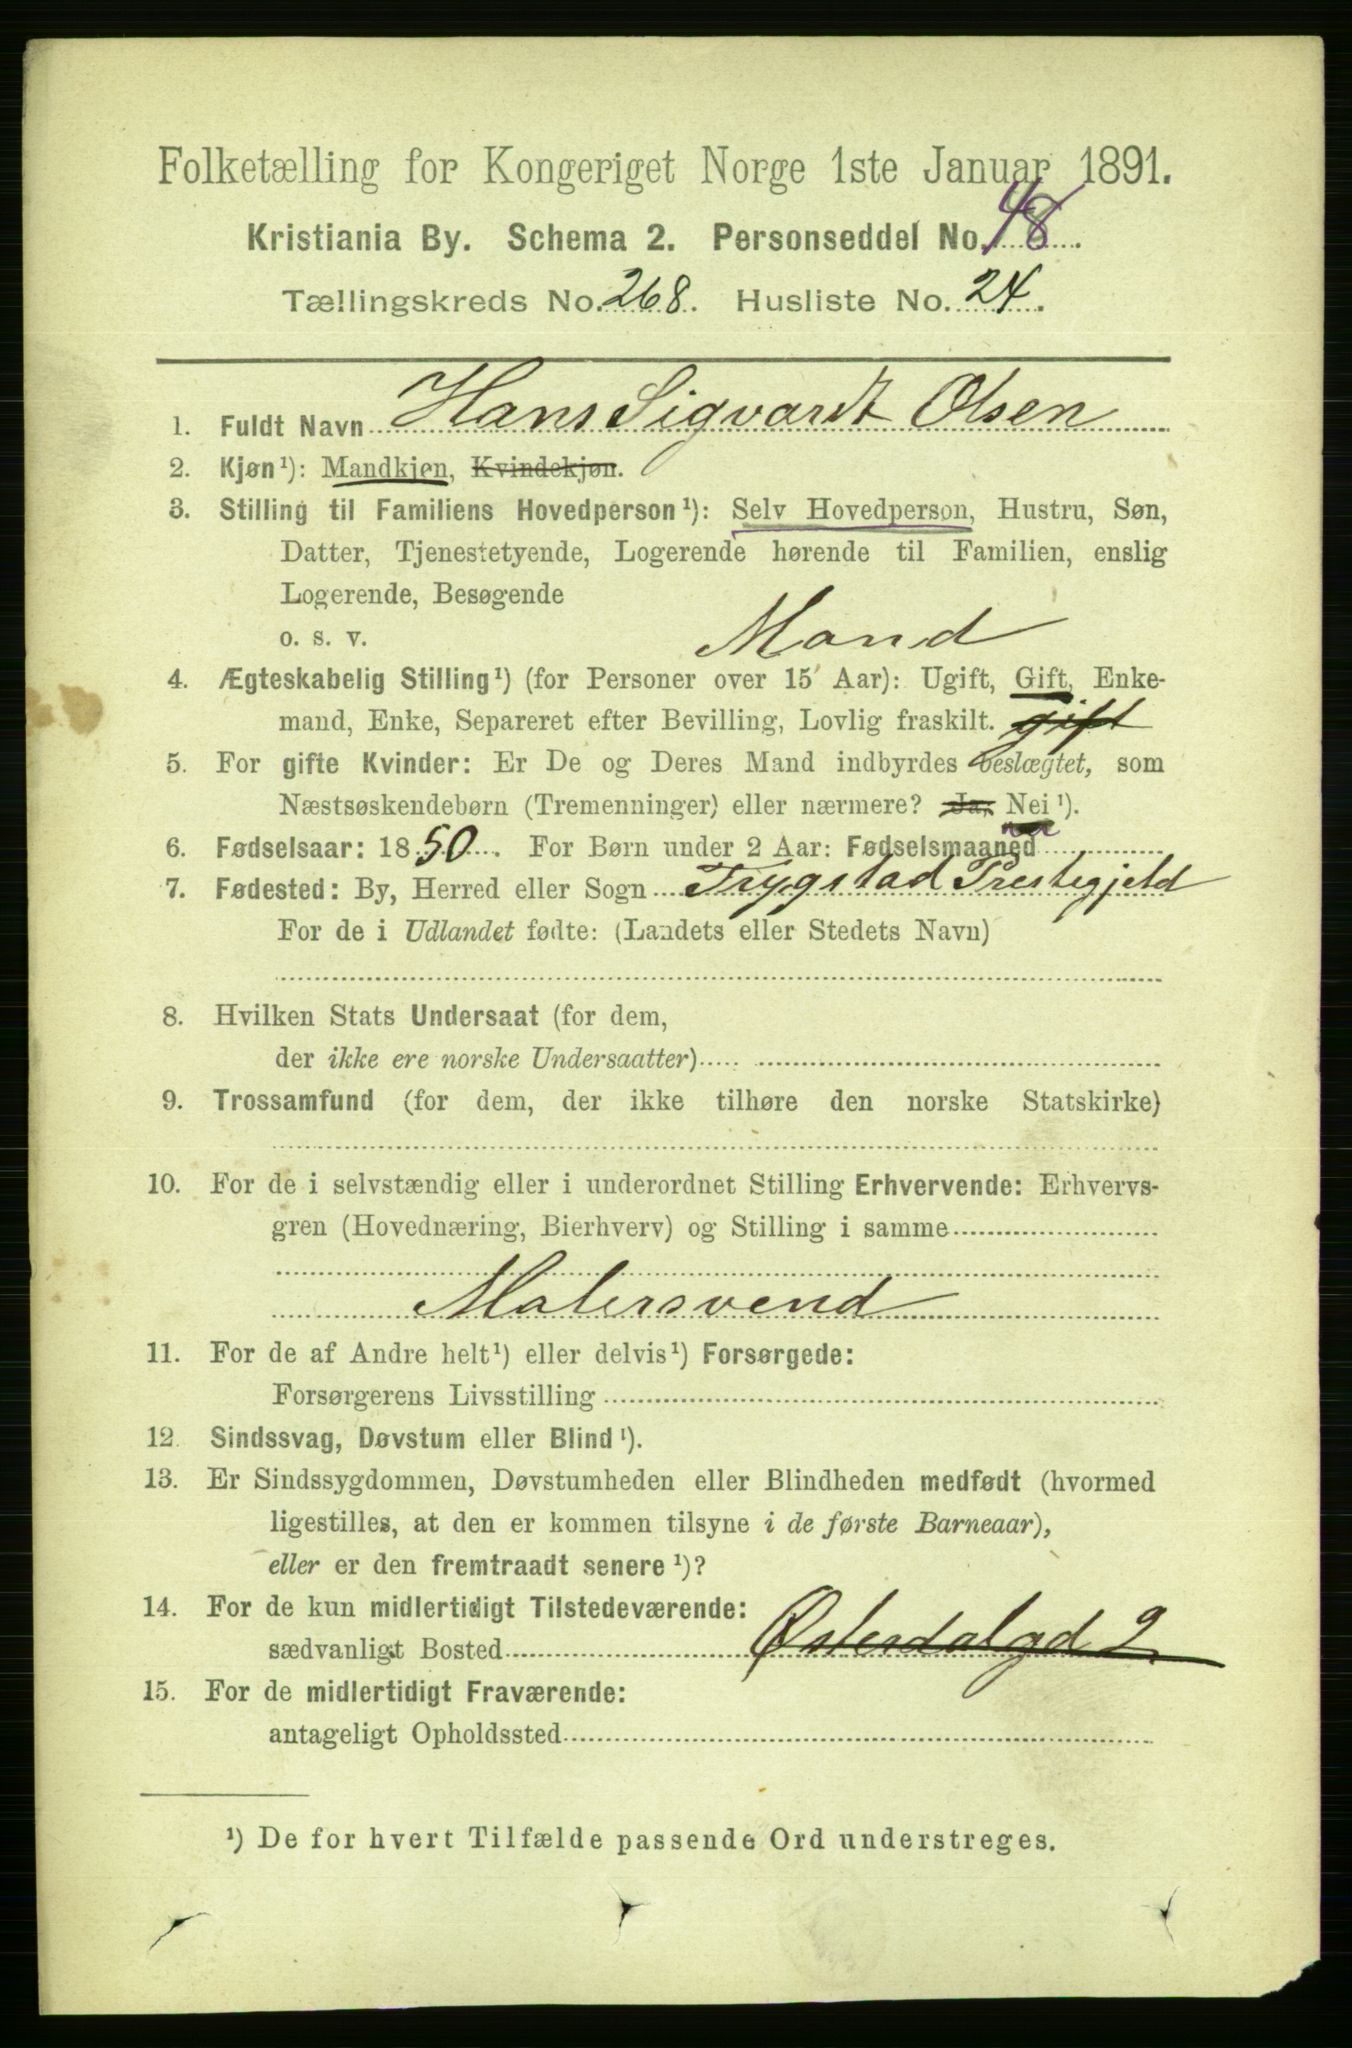 Folketælling for Kongeriget Norge 1ste Januar 1891.
Kristiania By. Schema 2. Personseddel No. 48.
Tællingskreds No. 268. Husliste No. 24.
1. Fuldt Navn Hans Sigvardt Olsen
2. Kjøn¹): Mandkjøn, Kvindekjøn.
3. Stilling til Familiens Hovedperson¹): Selv Hovedperson, Hustru, Søn,
Datter, Tjenestetyende, Logerende hørende til Familien, enslig
Logerende, Besøgende
o. s. v. Mand
4. Ægteskabelig Stilling¹) (for Personer over 15 Aar): Ugift, Gift, Enke-
mand, Enke, Separeret efter Bevilling, Lovlig fraskilt. gift
5. For gifte Kvinder: Er De og Deres Mand indbyrdes beslægtet, som
Næstsøskendebørn (Tremenninger) eller nærmere? Ja, Nei¹).
6. Fødselsaar: 1850. For Børn under 2 Aar: Fødselsmaaned
7. Fødested: By, Herred eller Sogn Trygstad Prestegjeld
For de i Udlandet fødte: (Landets eller Stedets Navn)
8. Hvilken Stats Undersaat (for dem,
der ikke ere norske Undersaatter)
9. Trossamfund (for dem, der ikke tilhøre den norske Statskirke)
10. For de i selvstændig eller i underordnet Stilling Erhvervende: Erhvervs-
gren (Hovednæring, Bierhverv) og Stilling i samme
Malersvend
11. For de af Andre helt¹) eller delvis¹) Forsørgede:
Forsørgerens Livsstilling
12. Sindssvag, Døvstum eller Blind¹).
13. Er Sindssygdommen, Døvstumheden eller Blindheden medfødt (hvormed
ligestilles, at den er kommen tilsyne i de første Barneaar),
eller er den fremtraadt senere¹)?
14. For de kun midlertidigt Tilstedeværende:
sædvanligt Bosted Østerdalgd 2
15. For de midlertidigt Fraværende:
antageligt Opholdssted
¹) De for hvert Tilfælde passende Ord understreges.